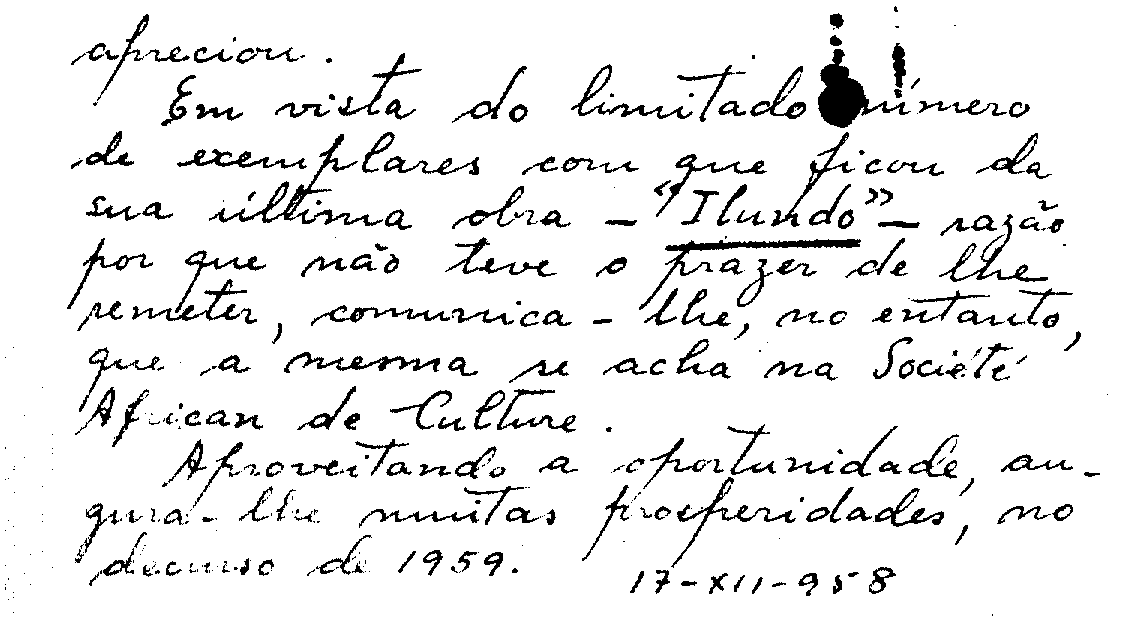 apreciou.
Em vista do limitado número
de exemplares com que ficou da
sua última obra – "Ilundo" – razão
por que não teve o prazer de lhe
remeter, comunica-lhe, no entanto,
que a mesma se acha na Société
African de Culture.
Aproveitando a oportunidade, au-
gura-lhe muitas prosperidades, no
decurso de 1959.
17-XII-958